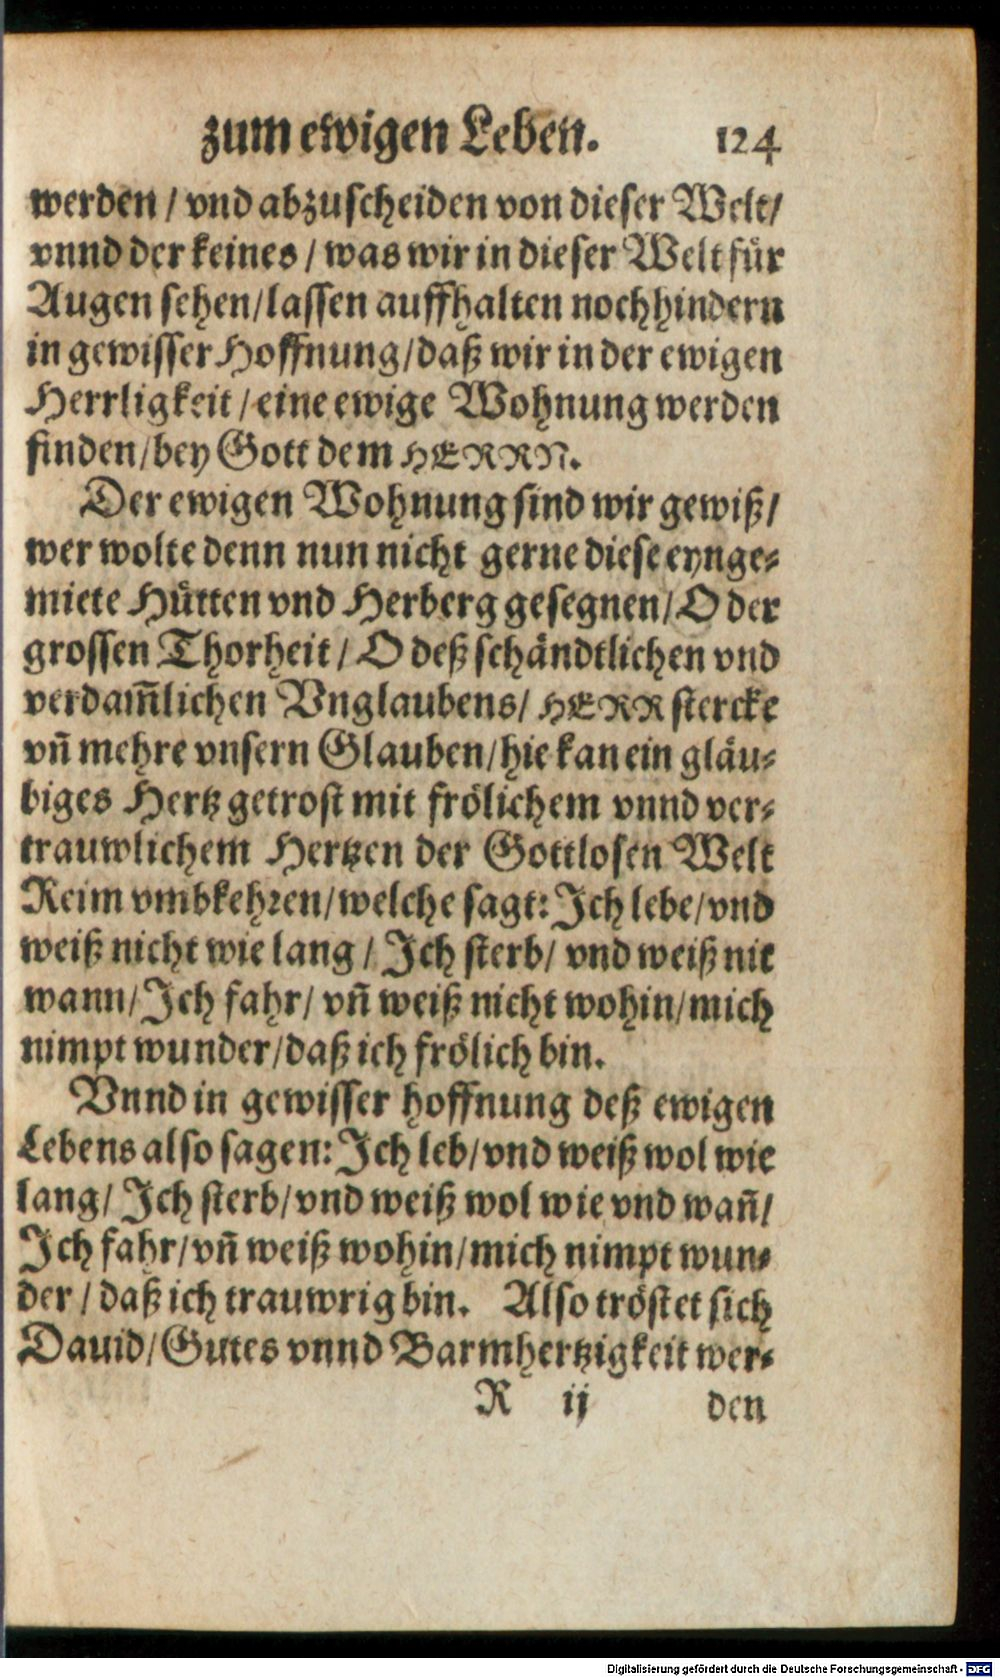 zum ewigen Leben. 124
werden / vnd abzuscheiden von dieser Welt/
vnnd der keines / was wir in dieser Welt für
Augen sehen/lassen auffhalten noch hindern
in gewisser Hoffnung/daß wir in der ewigen
Herrligkeit / eine ewige Wohnung werden
finden/bey Gott dem HERRN.
Der ewigen Wohnung sind wir gewiß/
wer wolte denn nun nicht gerne diese eynge-
miete Hütten vnd Herberg gesegnen/O der
grossen Thorheit / O deß schändtlichen vnd
verdam̃lichen Vnglaubens/ HERR stercke
vñ mehre vnsern Glauben/hie kan ein gläu-
biges Hertz getrost mit frölichem vnnd ver-
trauwlichem Hertzen der Gottlosen Welt
Reim vmbkehren/welche sagt: Ich lebe/vnd
weiß nicht wie lang / Ich sterb/ vnd weiß nit
wann/Ich fahr/ vñ weiß nicht wohin/mich
nimpt wunder/daß ich frölich bin.
Vnnd in gewisser hoffnung deß ewigen
Lebens also sagen: Ich leb/vnd weiß wol wie
lang/ Ich sterb/vnd weiß wol wie vnd wañ/
Ich fahr/vñ weiß wohin/mich nimpt wun-
der / daß ich trauwrig bin. Also tröstet sich
Dauid/Gutes vnnd Barmhertzigkeit wer-
R ij den
Digitalisierung gefördert durch die Deutsche Forschungsgemeinschaft - DFG